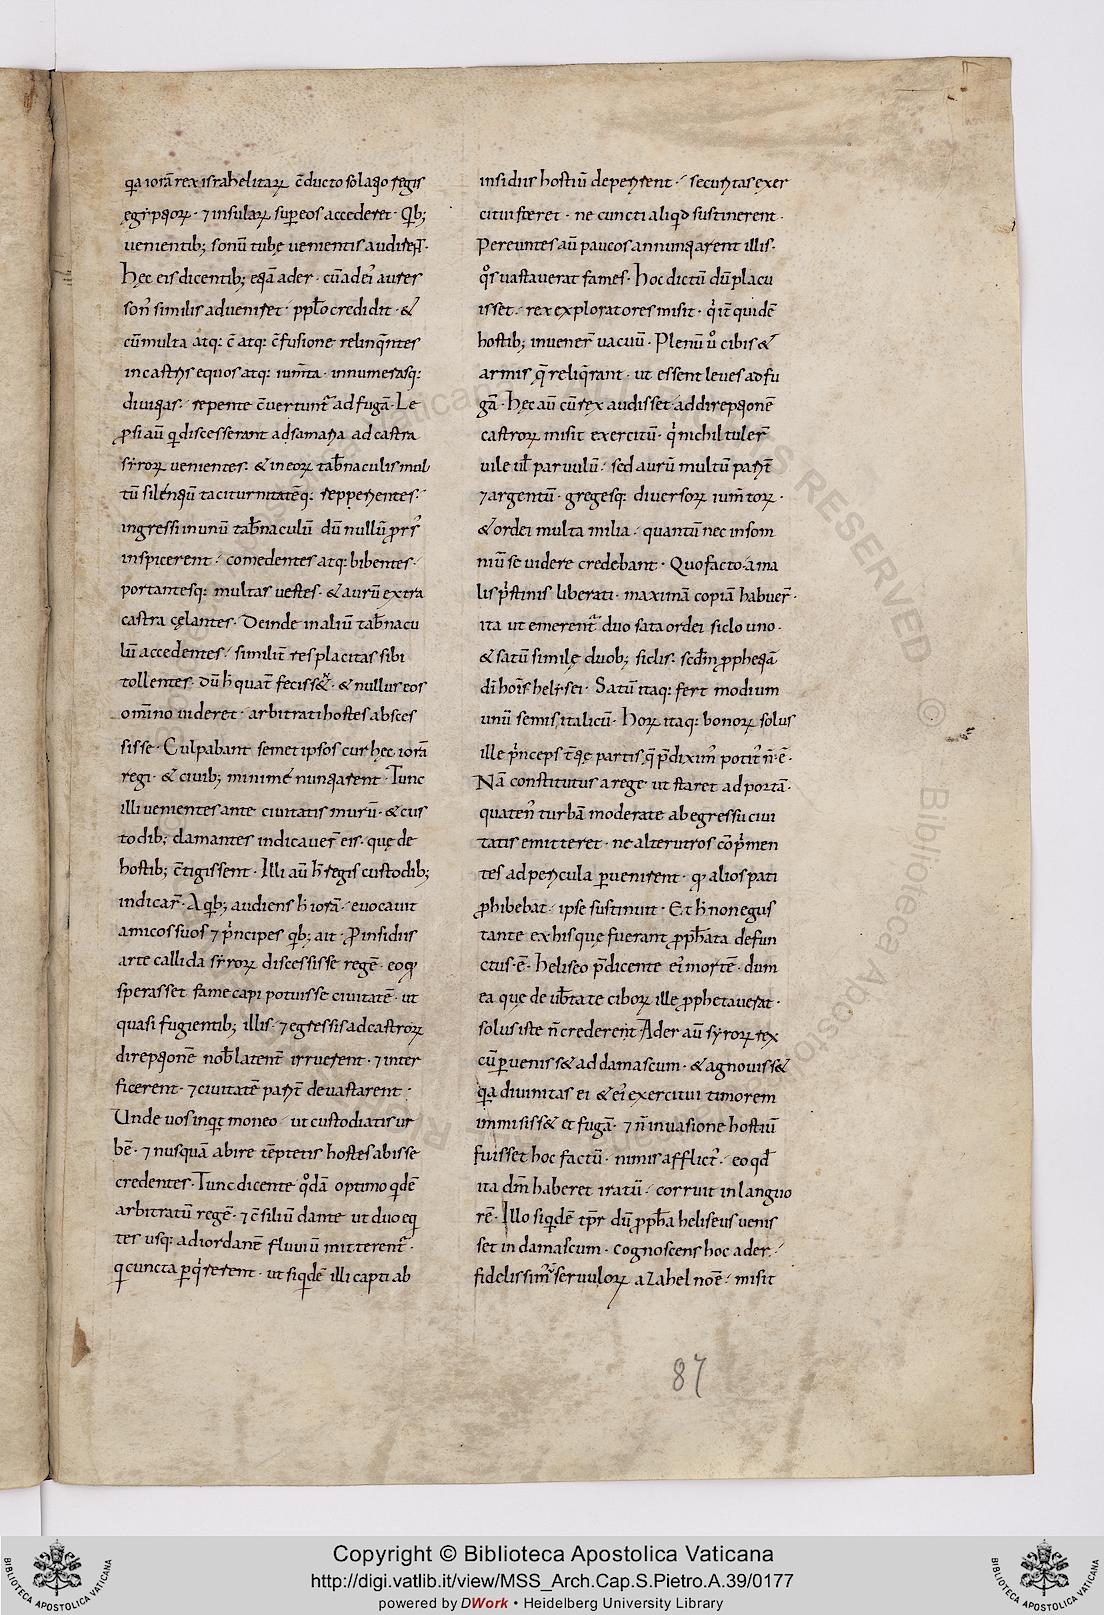 q̅a iorā rex israhelitarꝝ c̅ducto solacio regis
ęgẏpcioꝝ · ⁊ insulaꝝ sup̲ eos accederet · Qb;
uenientib; sonū tubę uenientis audirent ·
hęc eis dicentib; eq̄ā ader · cū ad ei᷒ aures
son᷒ similis adueniret · pp̲l̅o credidit · &
cū multa atq: c̅ atq: c̅fusione relinq̅ntes
in castris equos atq: ium̅ta · innumerasq:
diuicias · repente c̅uertunt᷑ ad fugā · Le
ꝓsi aū qui discesserant ad samaria ad castra
sẏroꝝ uenientes · & in eoꝝ tab̅naculis mul
tū silenciū taciturnitatēq: repperientes ·
ingressi in unū tab̅naculū dū nullū prs᷒
inspicerent · comedentes atq: bibentes ·
portantesq: multas uestes · & aurū extra
castra cęlantes · Deinde in aliū tab̅nacu
lū accedentes · similit̅ res placitas sibi
tollentes · dū h̅ quat̅ feciss& · & nullus eos
om̅ino uideret · arbitrati hostes absces
sisse · Culpabant semet ipsos cur hęc iorā
regi · & ciuib; minime nunciarent · Tunc
illi uenientes ante ciuitatis murū · & cus
todib; clamantes indicauer̅ eis · quę de
hostib; c̅tigissent · Illi aū h̅ regis custodib;
indicar̅ · A qb; audiens h̅ iorā · euocauit
amicos suos ⁊ pͥncipes qb; ait · Pro insidiis
arte callida sẏroꝝ discessisse regē · eo qđ
sperasset fame capi potuisse ciuitatē · ut
quasi fugientib; illis · ⁊ egressis ad castroꝝ
direpcionē nob̅ latent̅ irruerent · ⁊ inter
ficerent · ⁊ ciuitatē parit̅ deuastarent ·
Unde uos inquit moneo · ut custodiatis ur
bē · ⁊ nusquā abire tēptetis hostes abisse
credentes · Tunc dicente qͦdā optimo qdē
arbitratū regē · ⁊ c̅siliū dante ut duo eq
tes usq: ad iordanē fluuiū mitterent᷑ ·
qͥ cuncta p̲qͥrerent · ut siqdē illi capti ab
insidiis hostiū deperirent · securitas exer
citui fieret · ne cuncti aliqd sustinerent ·
Pereuntes aū paucos annunciarent illis ·
qͦs uastauerat fames · hoc dictū dū placu
isset · rex exploratores misit · qͥ it̅ quidē
hostib; inuener̅ uacuū · Plenū u̅o cibis &
armis q̅ reliq̅rant · ut essent leues ad fu
gā · hęc aū cū rex audisset · ad direpcionē
castroꝝ misit exercitū · qͥ nichil tuler̅
uile uł paruulū · sed aurū multū parit̅
⁊ argentū · gregesq: diuersoꝝ ium̅toꝝ ·
& ordei multa milia · quantū nec in som
niū se uidere credebant · Quo facto · a ma
lis pͥstinis liberati · maximā copiā habuer̅ ·
ita ut emerent᷑ duo sata ordei siclo uno ·
& satū similę duob; siclis · scd̅m ꝓpheciā
di̅ hoi̅s heli·sei · Satū itaq: fert modium
unū semis italicū · horꝝ itaq: bonoꝝ solus
ille pͥnceps t̅cię partis q̅ p̅diximᷣ potit᷒ n̅·ē ·
Nā constitutus a rege ut staret ad portā ·
quaten᷒ turbā moderate ab egressu ciui
tatis emitteret · ne alterutros co̅pͥmen
tes ad pericula p̲uenirent · qđ alios pati
ꝓhibebat · ipse sustinuit · Et h̅ non egus
tante ex his quę fuerant ꝓph̅ata defun
ctus·ē · heliseo p̅dicente ei᷒ mortē · dum
ea quę de ub̅tate ciboꝝ ille ꝓphetauerat ·
solus iste n̅ crederent Ader aū sẏroꝝ rex
cū p̲ueniss& ad damascum · & agnouiss&
q̅a diuinitas ei & ei᷒ exercitui timorem
immisiss& et fugā · ⁊ n̅ inuasione hostiū
fuisset hoc factū · nimis afflict᷒ · eo qđ
ita dm̅ haberet iratū · corruit in languo
rē · Illo siqdē tp̅r dū ꝓph̅a heliseus uenis
set in damascum · cognoscens hoc ader ·
fidelissimū seruuloꝝ azahel noē · misit
87
Copyright © Biblioteca Apostolica Vaticana
http://digi.vatlib.it/view/MSS_Arch.Cap.S.Pietro.A.39/0177
powered by DWork • Heidelberg University Library